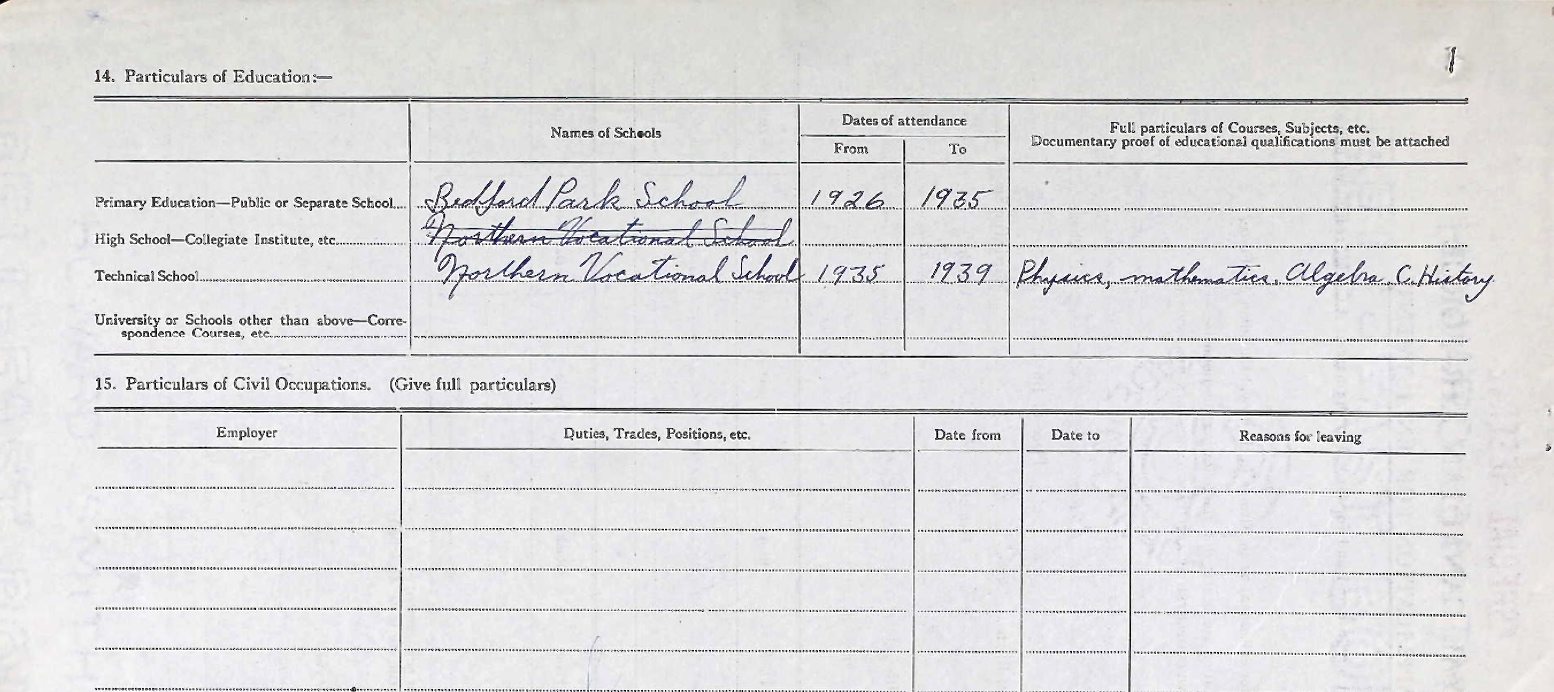 1
14. Particulars of Education:—
Names of Schools
Dates of attendance
From
To
Full particulars of Courses, Subjects, etc.
Documentary proof of educational qualifications must be attached
Primary Education—Public or Separate School
Bedford Park School
1926
1935
High School—Collegiate Institute, etc.
Northern Vocational School
Technical School
Northern Vocational School
1935
1939
Physics, mathematics, Algebra C. History
University or Schools other than above—Corre-
spondence Courses, etc.
15. Particulars of Civil Occupations. (Give full particulars)
Employer
Duties, Trades, Positions, etc.
Date from
Date to
Reasons for leaving